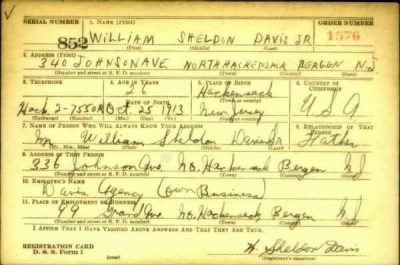 SERIAL NUMBER 1. NAME (Print) ORDER NUMBER
852 WILLIAM SHELDON DAVIS JR 1576
(First) (Middle) (Last)
2. ADDRESS (Print)
340 JOHNSON AVE NORTH HACKENSACK BERGEN N.J
(Number and street or R. F. D. number) (Town) (County) (State)
3. TELEPHONE 4. AGE IN YEARS 5. PLACE OF BIRTH 6. COUNTRY OF CITIZENSHIP
26 Hackensack
DATE OF BIRTH
Hack. 2-7550R Oct. 25 1913 New Jersey U S A
7. NAME OF PERSON WHO WILL ALWAYS KNOW YOUR ADDRESS 8. RELATIONSHIP OF THAT PERSON
Mr. William Sheldon Davis Sr Father
(Mr., Mrs., Miss) (First) (Middle) (Last)
9. ADDRESS OF THAT PERSON
336 Johnson Ave. No. Hackensack Bergen NJ
(Number and street or R. F. D. number) (Town) (County) (State)
10. EMPLOYER'S NAME
Davis Agency (Own Business)
11. PLACE OF EMPLOYMENT OR BUSINESS
Grand Ave No. Hackensack Bergen NJ
(Number and street or R. F. D. number) (Town) (County) (State)
I AFFIRM THAT I HAVE VERIFIED ABOVE ANSWERS AND THAT THEY ARE TRUE.
REGISTRATION CARD
D. S. S. Form 1
W. Sheldon Davis
(Registrant's signature)